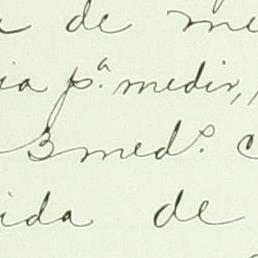 a de me
ia pª. medir,
3 medº. c
ida de